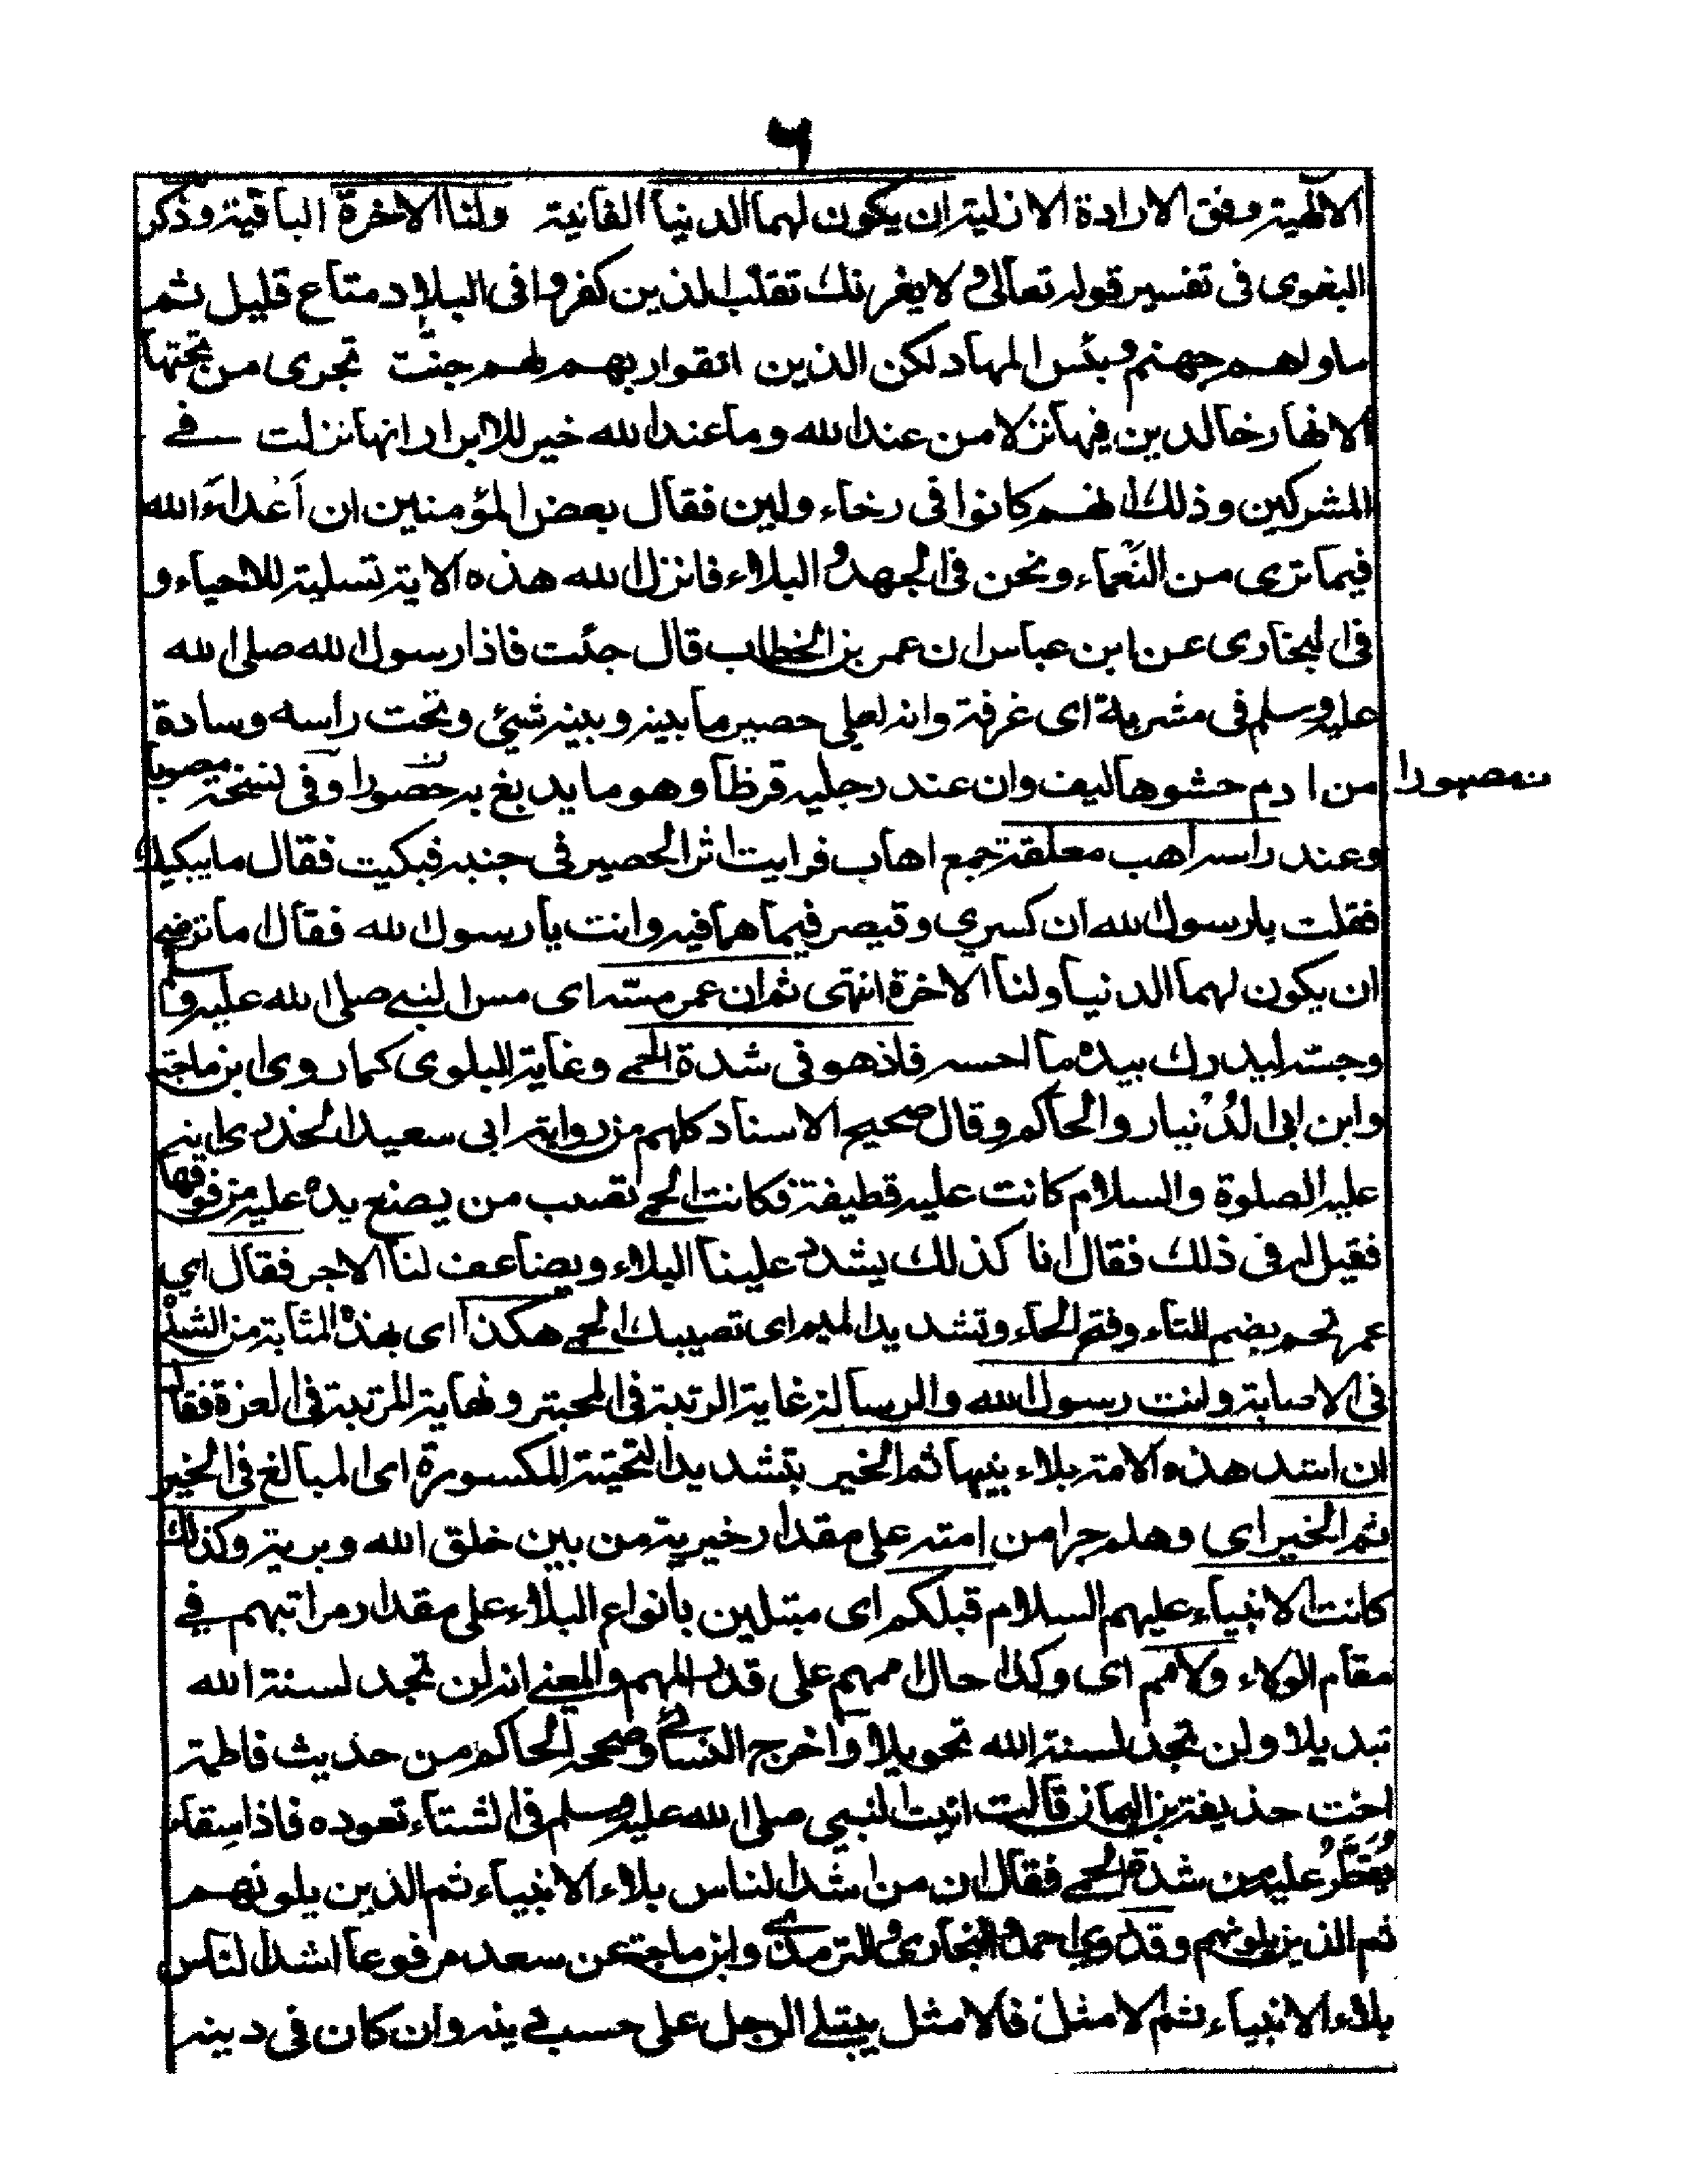 ٦
الالهية وفق الارادة الازلية ان يكون لهما الدنيا الفانية ولنا الاخرة الباقية وذكر
البغوى فى تفسير قوله تعالى لا يغرنك تقلب الذين كفروا فى البلاد متاع قليل ثم
ماولهم جهنم وبئس المهاد لكن الذين اتقوا ربهم لهم جنّت تجرى من تحتها
الانهار خالدين فيها نزلا من عند الله وما عند الله خير للابرار انها نزلت فى
المشركين وذلك انهم كانوا فى رخاء ولين فقال بعض المؤمنين ان أعداءَ الله
فيما نرى من النَّعماء ونحن فى الجهد و البلاء فانزل الله هذه الاية تسلية للاحياء و
فى البخارى عن ابن عباس ان عمر بن الخطاب قال جئت فاذا رسول الله صلى الله
عليه وسلم فى مشربة اى غرفة وانه لعلى حصير ما بينه وبينه شيئ وتحت راسه وسادة
من ادم حشوها ليف وان عند رجليه قرظا وهو ما يدبغ به مصبورا وفى نسخة مصوبا
ن مصبورا
وعند راسه اهب معلقة جمع اهاب فرايت اثر الحصير فى جنبه فبكيت فقال ما يبكيك
فقلت يا رسول الله ان كسرى وقيصر فيما هما فيه وانت يا رسول الله فقال اما ترضى
ان يكون لهما الدنيا ولنا الاخرة انتهى ثم ان عمر مسّه اى مس النبى صلى الله عليه وسلم
وجسّه ليدرك بيده ما احسه فاذ هو فى شدة الحمى وغاية البلوى كما روى ابن ماجة
وابن ابى الدُنيا والحاكم وقال صحيح الاسناد كلهم من رواية ابى سعيد الخدرى انه
عليه الصلوة والسلام كانت عليه قطيفة فكانت الحمى تصيب من يصنع يده عليه من فوقها
فقيل له فى ذلك فقال انا كذلك يشدد علينا البلاء ويضاعف لنا الاجر فقال اى
عمر تحم بضم التاء وفتح الحاء وتشديد الميم اى تصيبك الحمى هكذا اى بهذه المثابة من الشدة
فى الاصابة وانت رسول الله والرسالة غاية الرتبة فى المحبة ونهاية المرتبة فى العزة فقال
ان اشد هذه الامة بلاء نبيها ثم الخير بتشديد التحتية المكسورة اى المبالغ فى الخير
ثم الخير اى وهلم جرا من امته على مقدار خيرية من بين خلق الله وبريته وكذلك
كانت الانبياء عليهم السلام قبلكم اى مبتلين بانواع البلاء على مقدار مراتبهم فى
مقام الولاء والامم اى وكذا حال اممهم على قدر المهم والمعنى انه لن تجد لسنة الله
تبديلا ولن تجد لسنة الله تحويلا واخرج النسائى وصححه الحاكم من حذيث فاطمة
اخت حذيفة بن اليمان قالت اتيت النبي صلى الله عليه وسلم فى الشتاء تعوده فاذا سقاء
يُقَطَّرُ عليه من شدة الحمى فقال ان من اشد الناس بلاء الانبياء ثم الذين يلونهم
ثم الذين يلونهم وقد روى احمد والبخارى والترمذى وابن ماجة عن سعد مرفوعا اشد الناس
بلاء الانبياء ثم الامثل فالامثل يبتلى الرجل على حسب دينه وان كان فى دينه